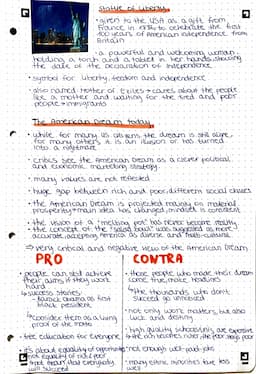 Statue of Liberty
- given to the USA as a gift from
France in 1876 to celebrate the first
100 years of American independence from
Britain
- a powerful and welcoming woman
holding a torch and a tablet in her hands, showing
the date of the Declaration of Independence
- symbol for liberty, freedom and independence
- also named Mother of Exiles → cares about the people
like a mother and waiting for the tired and poor
people → immigrants
The American Dream today
- while for many US citizens the dream is still alive,
for many others it is an illusion or has turned
into a nightmare
- critics see the American Dream as a clever political
and economic marketing strategy
- many values are not reflected
- huge gap between rich and poor, different social classes
- the American Dream is projected mainly on material
prosperity → main idea has changed, mindset is consistent
- the vision of a "melting pot" has never become reality,
the concept of the "salad bowl" was suggested as more
accurate, accepting America as diverse and multi-cultural
⇒ very critical and negative view of the American Dream
PRO
- people can still achieve
their aims if they work
hard
↳ success stories:
- Barack Obama as first
black president
↳ consider them as a living
proof of the motto
- free education for everyone
- it's about equality of opportunities
not equality of outcome
not mean that everybody
will succeed
CONTRA
- those people who made their dream
come true, make headlines
↳ the thousands who don't
succeed go unnoticed
- not only work matters, but also
luck and destiny
- high quality schooling are expensive
↳ the rich become richer, the poor stay poor
- not enough well-paid jobs
- many ethnic minorities have less